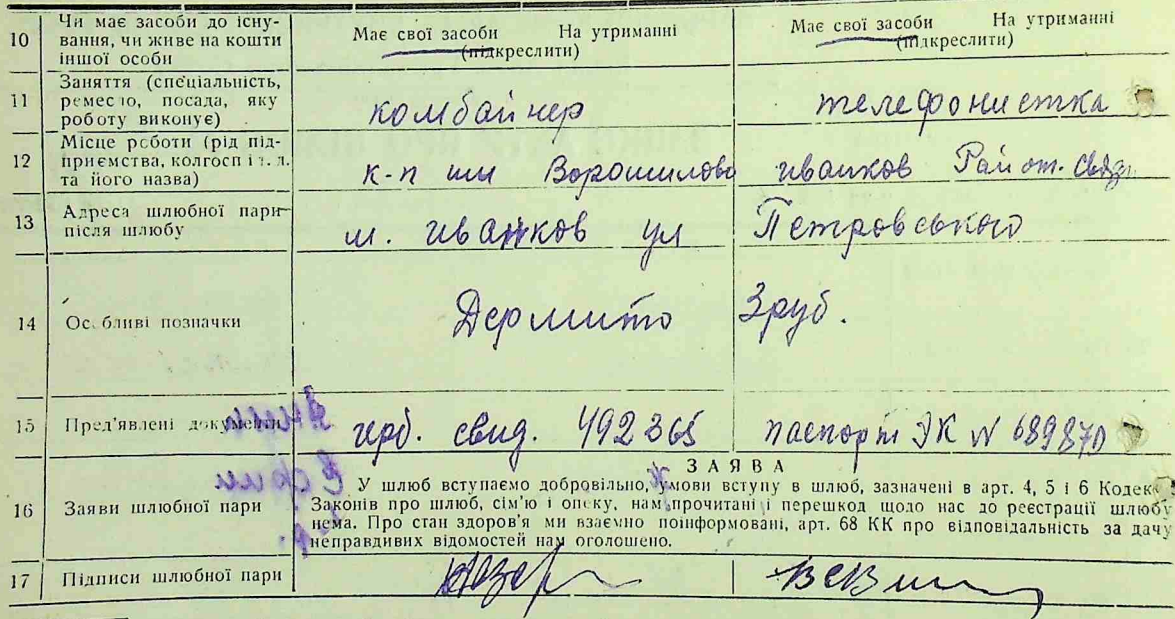 10 Чи має засоби до існу-
вання, чи живе на кошти
іншої особи
Має свої засоби На утриманні
(підкреслити)
Має свої засоби На утриманні
(підкреслити)
11 Заняття (спеціальність,
ремесло, посада, яку
роботу виконує)
комбайнер
телефонистка
12 Місце роботи (рід під-
приємства, колгосп і т. д.
та його назва)
к-п им Ворошилова
иванков Рай от. связи
13 Адреса шлюбної пари
після шлюбу
м. иванков ул Петровського
14 Особливі позначки
Держмито 3руб.
15 Пред'явлені документи
серб. свид. 492365
паспорт ЭК N 689870
16 Заяви шлюбної пари
ЗАЯВА
У шлюб вступаємо добровільно, умови вступу в шлюб, зазначені в арт. 4, 5 і 6 Кодек
Законів про шлюб, сім'ю і опеку, нам прочитані і перешкод щодо нас до реєстрації шлюбу
нема. Про стан здоров'я ми взаємно поінформовані, арт. 68 КК про відповідальність за дачу
неправдивих відомостей нам оголошено.
17 Підписи шлюбної пари